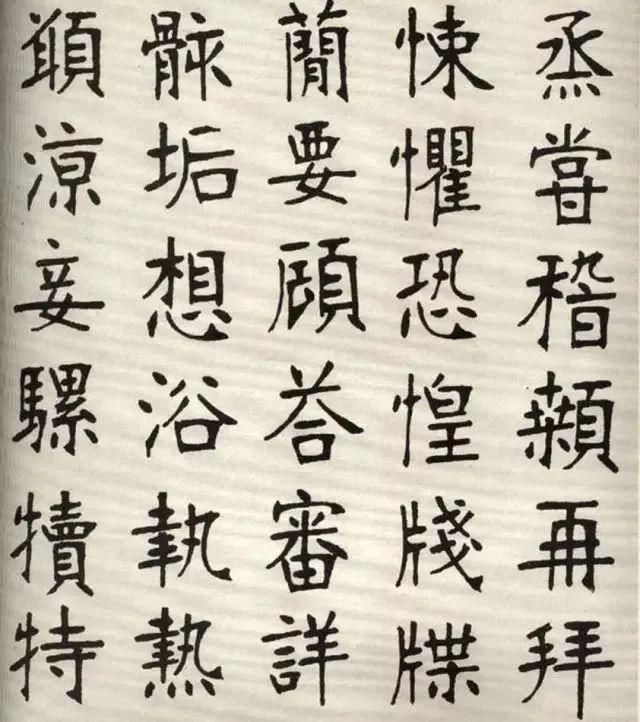 烝甞稽顙再拜
悚懼恐惶牋牒
簡要顧荅審詳
骸垢想浴執熱
願涼妾騾犢特